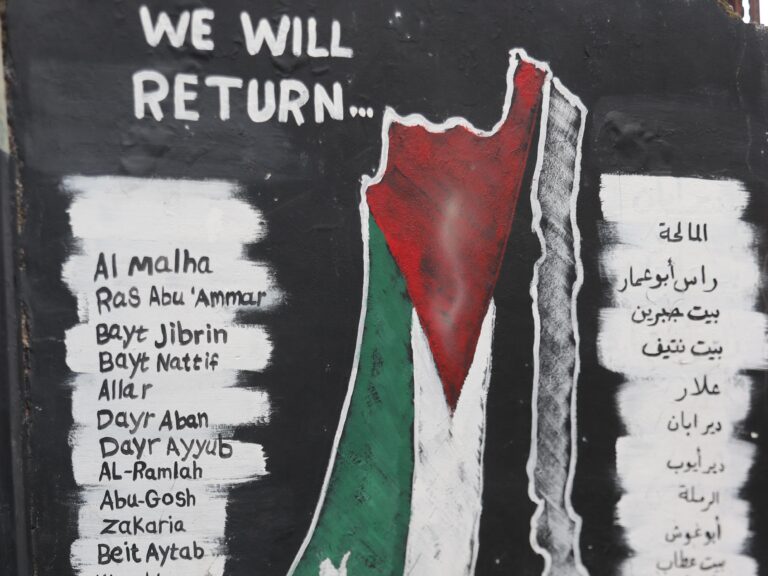 WE WILL
RETURN...
Al Malha
Ras Abu 'Ammar
Bayt Jibrin
Bayt Nattif
Allar
Dayr Aban
Dayr Ayyub
AL-Ramlah
Abu-Gosh
Zakaria
Beit Aytab
المالحة
راس أبو عمار
بيت جبرين
بيت نتيف
علار
دير ابان
دير أيوب
الرملة
أبو غوش
بيت عطاب